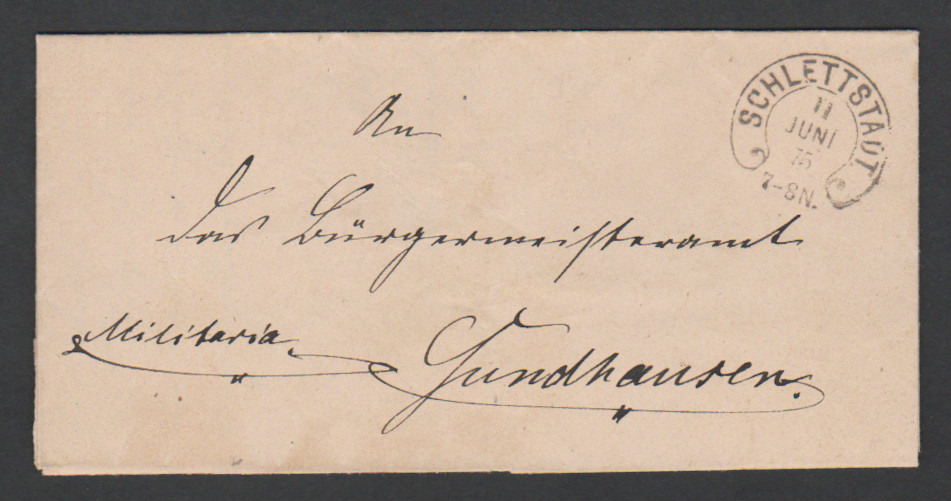 SCHLETTSTADT
11
JUNI
75
7-8N.
An
das Bürgermeisteramt
Militaria.
Sundhausen.